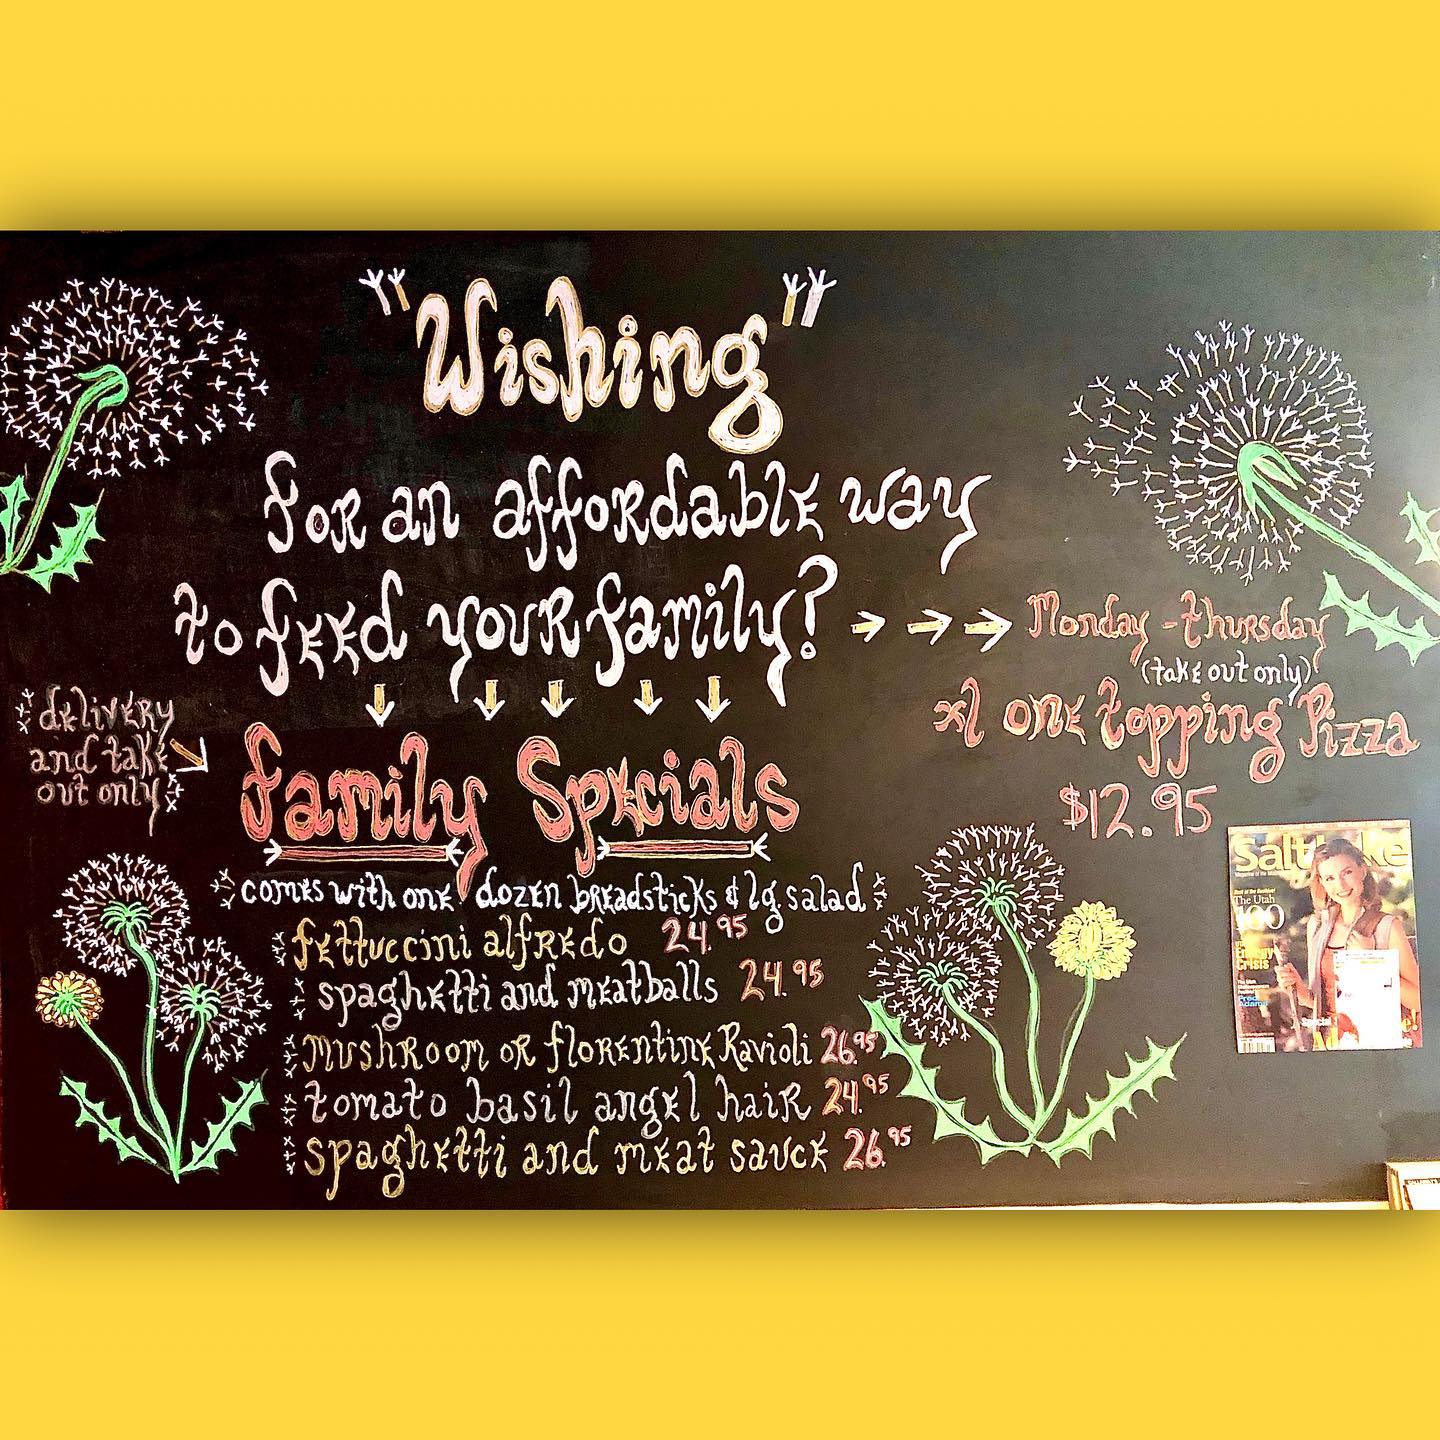 "Wishing"
for an affordable way
to feed your family?
Monday - thursday
(take out only)
xl one topping Pizza
$12.95
delivery
and take
out only
family Specials
comes with one dozen breadsticks & lg. salad
fettuccini alfredo 24.95
spaghetti and meatballs 24.95
mushroom or florentine Ravioli 26.95
tomato basil angel hair 24.95
spaghetti and meat sauce 26.95
Salt Lake
The Utah
100
Energy
Crisis